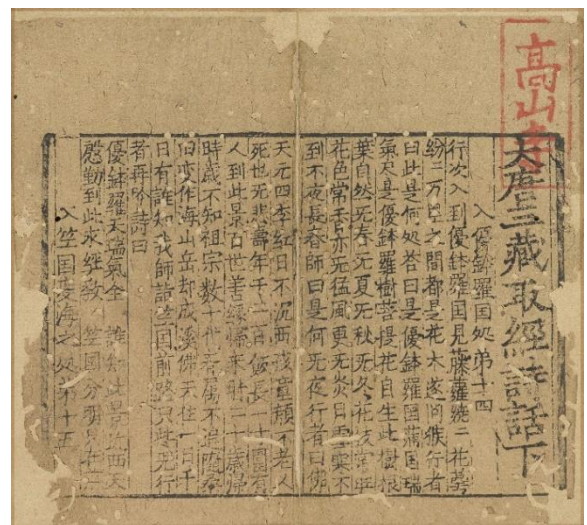 高山寺
大唐三藏取經詩話下
入優鉢羅国处第十四
行次入到優鉢羅国見藤蘿繞二花萼
紛二万里之間都是花木遂问猴行者
曰此是何处荅曰是優鉢羅国蒲国瑞
氣尽是優鉢羅樹菩提花自生此樹根
葉自然无春无夏无秋无冬花枝常旺
花色常香亦无猛風更无炎日雪寒不
到不夜長春師曰是何无夜行者曰佛
天无四季紅日不沉西孩童顔不老人
死也无悲壽年千二百飯長一十圍有
人到此景百世善緣
時歲不知祖宗數十代
旧变作海山岳却成溪佛天住一日千
日有誰知我師詣竺国前路只此
行者再吟詩曰
優鉢羅天瑞氣全 誰知此景近西天
慇懃到此求經教 竺国分明只在
入竺国度海之处第十五